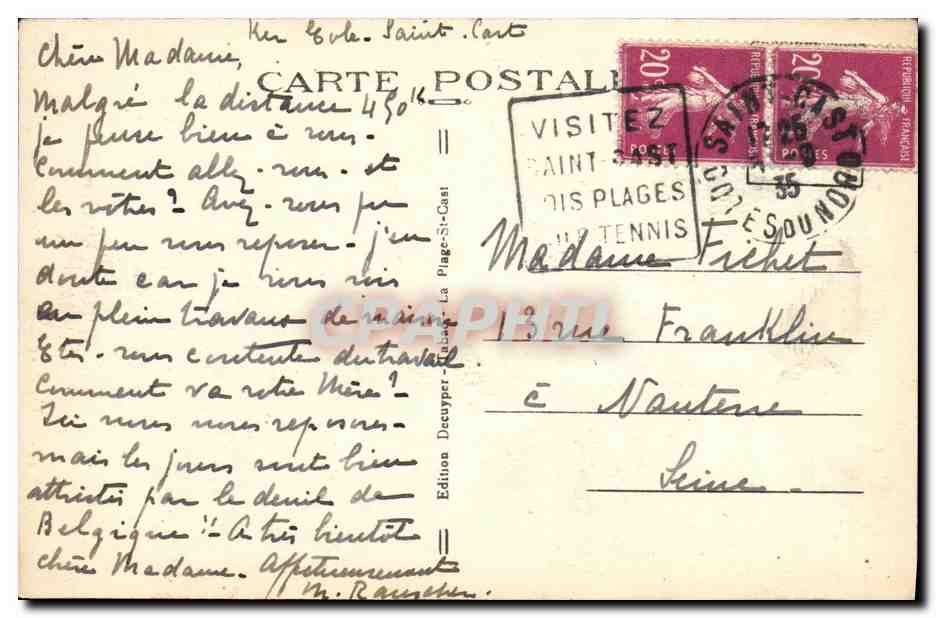 Ker Eole - Saint-Cast
Chère Madame,
CARTE POSTALE
Malgré la distance 450 k
je pense bien à vous -
Comment allez-vous - et
les vôtres? Avez-vous pu
un peu vous reposer - j'en
doute car je vous vois
en plein travaux de maison
Etes-vous contente du travail.
Comment va votre Mère?
Ici nous nous reposons -
mais les jours sont bien
attristés par le deuil de
Belgique!! - A très bientôt
chère Madame. Affectueusement
M.
Edition Decuyper - Tabac - La Plage-St-Cast
VISITEZ
SAINT-CAST
OIS PLAGES
TENNIS
SAINT-CAST
COTES DU NORD
25
35
20c
POSTES
REPUBLIQUE FRANÇAISE
20c
POSTES
REPUBLIQUE FRANÇAISE
Madame Fichet
13 rue Franklin
à Nanterre
Seine
CRAPHIL